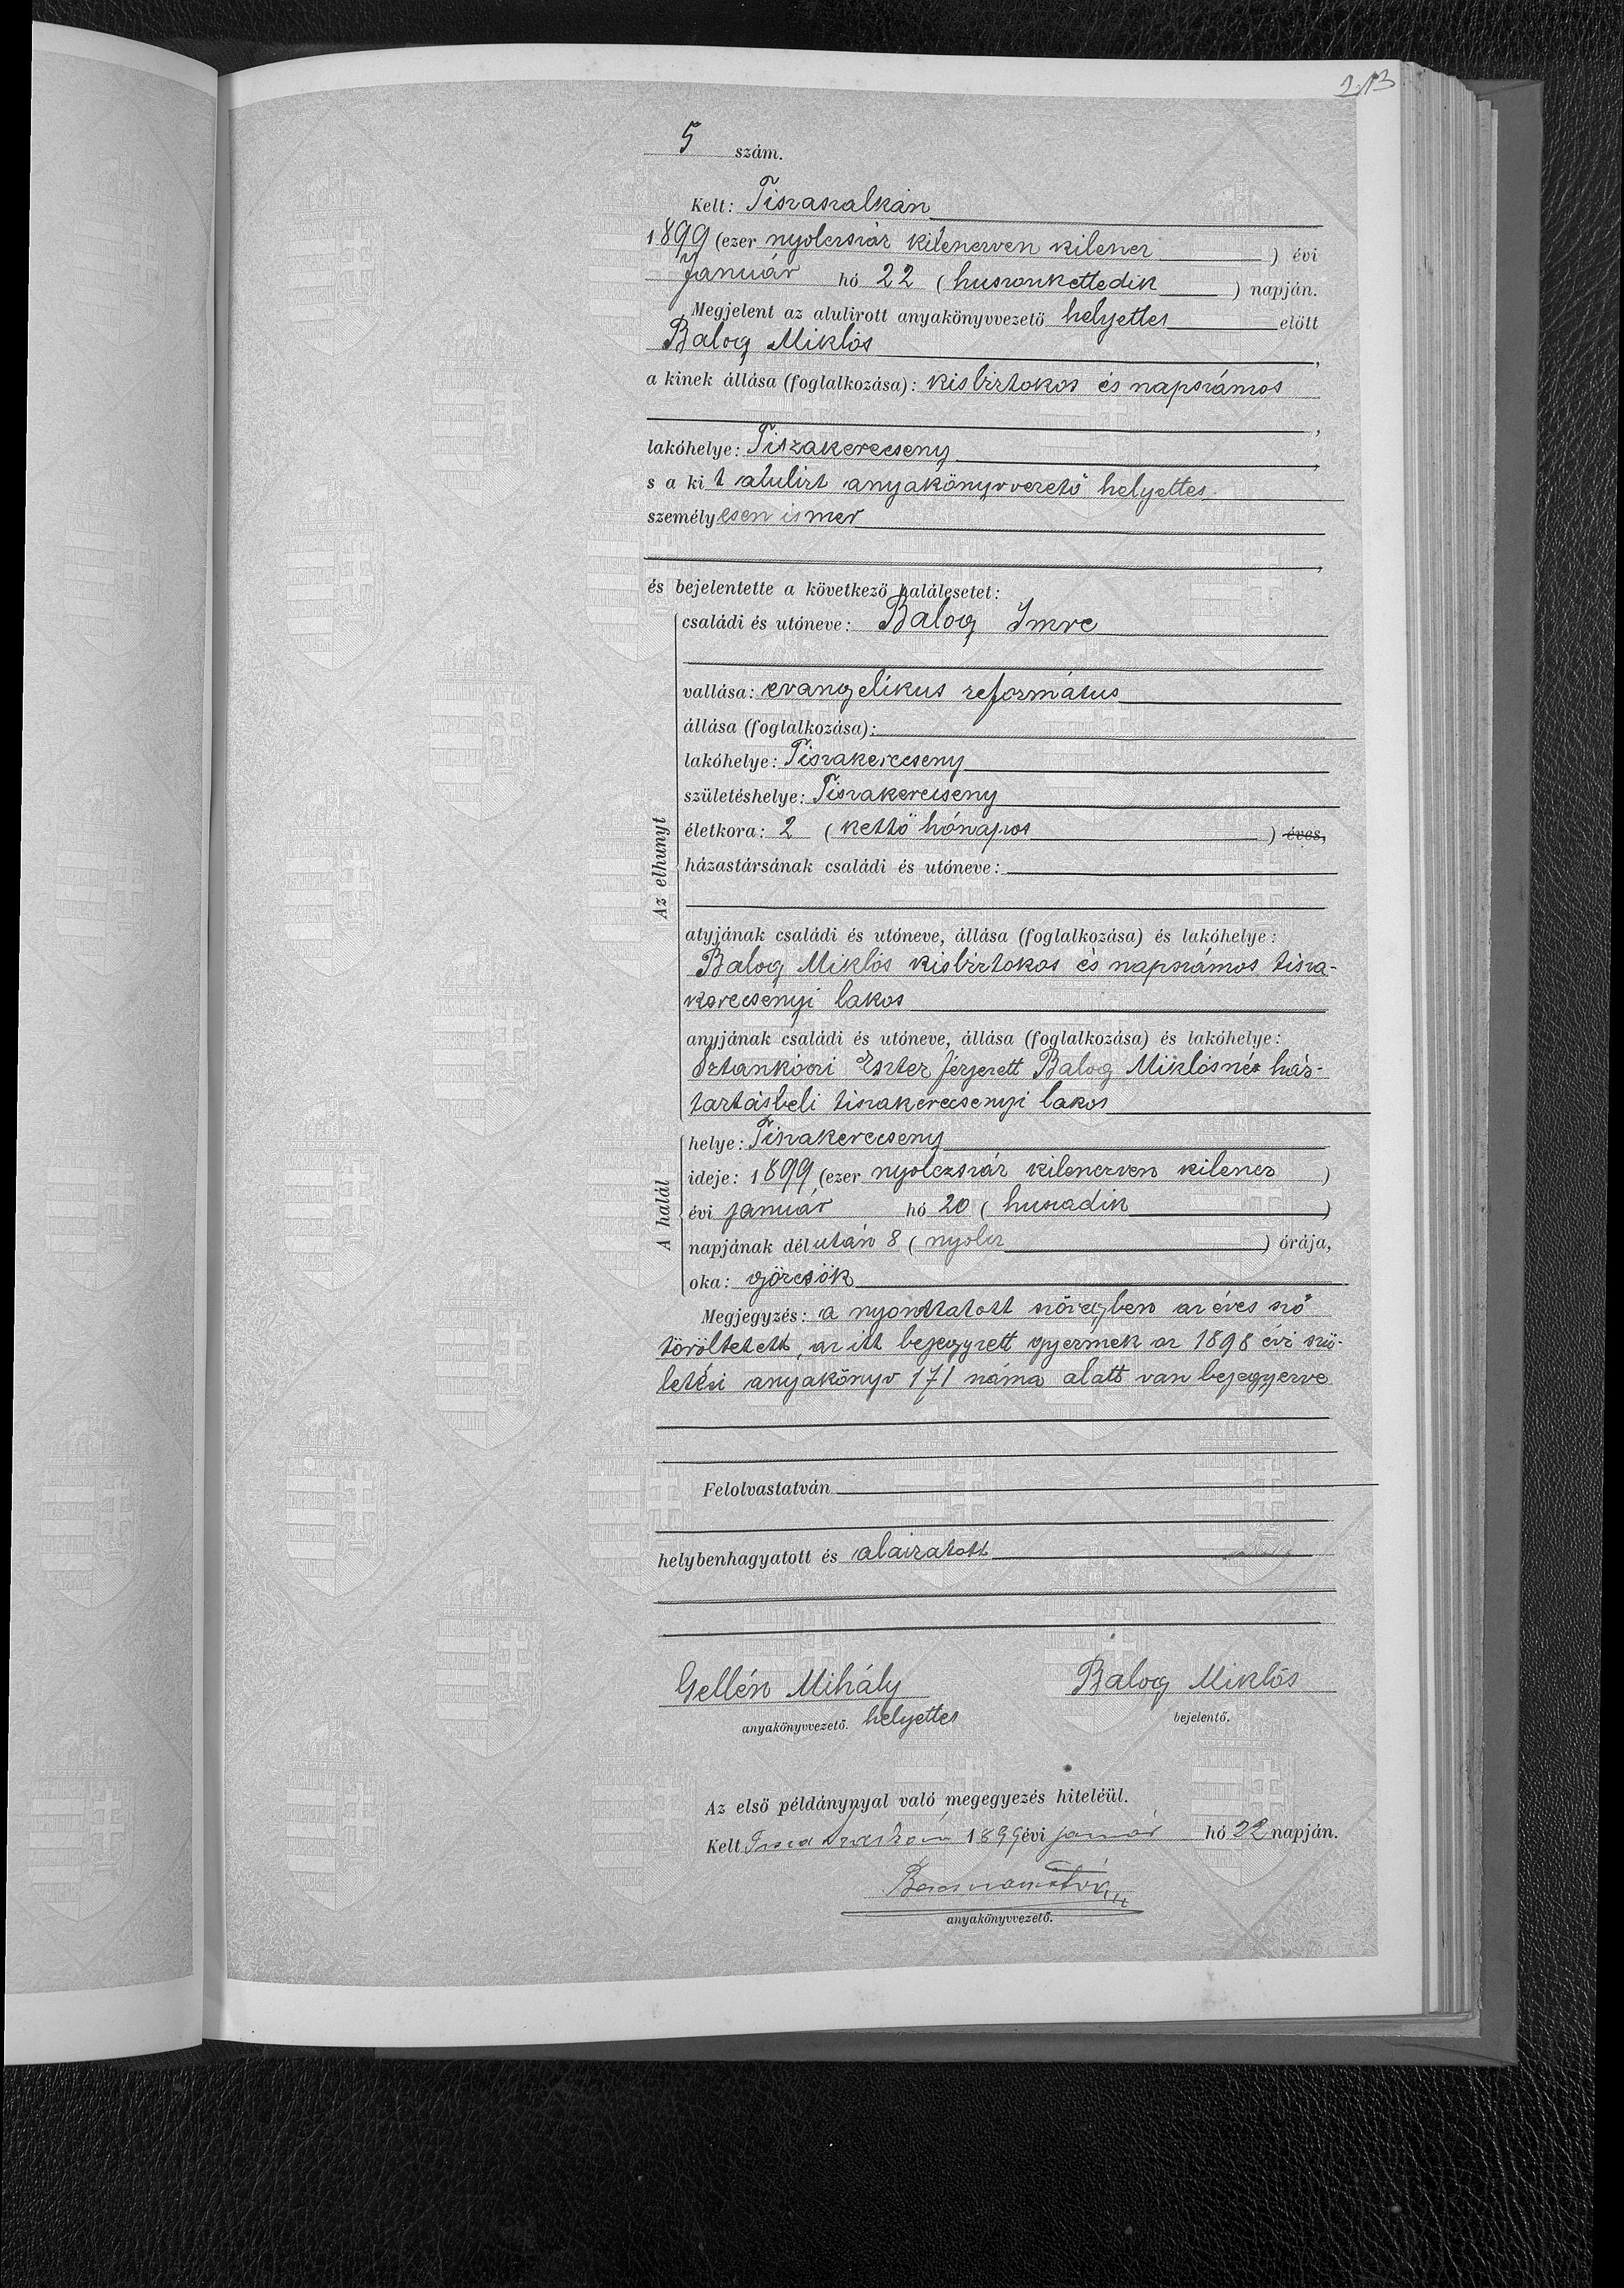 213
5 szám.
Kelt: Tiszaszalkán
1899 (ezer nyolczszáz kilenczven kilencz) évi
Január hó 22 (huszonkettedik) napján.
Megjelent az alulirott anyakönyvvezető helyettes előtt
Balog Miklós,
a kinek állása (foglalkozása): kisbirtokos és napszámos
,
lakóhelye: Tiszakerecseny,
s a kit alulirt anyakönyvvezető helyettes
személyesen ismer
,
és bejelentette a következő halálesetet:
Az elhunyt
családi és utóneve: Balog Imre
vallása: evangelikus református
állása (foglalkozása):
lakóhelye: Tiszakerecseny
születéshelye: Tiszakerecseny
életkora: 2 (kettő hónapos) éves,
házastársának családi és utóneve:
atyjának családi és utóneve, állása (foglalkozása) és lakóhelye:
Balog Miklós kisbirtokos és napszámos tisza-
kerecsenyi lakos
anyjának családi és utóneve, állása (foglalkozása) és lakóhelye:
Sztankóczi Eszter férjezett Balog Miklósné ház-
tartásbeli tiszakerecsenyi lakos
A halál
helye: Tiszakerecseny
ideje: 1899 (ezer nyolczszáz kilenczven kilencz)
évi január hó 20 (huszadik)
napjának délután 8 (nyolcz) órája,
oka: görcsök
Megjegyzés: a nyomtatott szövegben az éves szó
töröltetett, az itt bejegyzett gyermek az 1898 évi szü-
letési anyakönyv 171 száma alatt van bejegyezve
Felolvastatván
helybenhagyatott és alairatott
Gellén Mihály Balog Miklós
anyakönyvvezető. helyettes bejelentő.
Az első példánynyal való megegyezés hiteléül.
Kelt 1899 évi január hó 22 napján.
anyakönyvvezető.